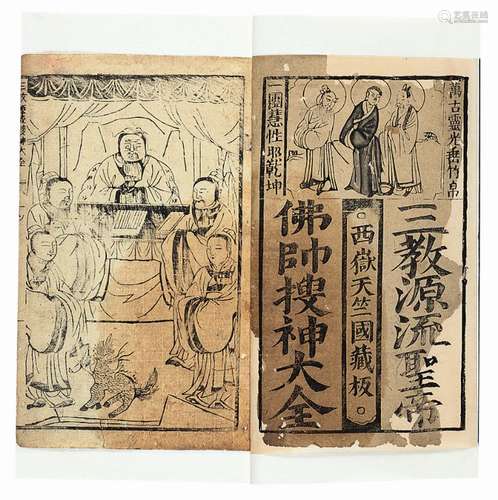 萬古靈光垂竹帛
一團慧性耶乾坤
三教源流聖帝
西嶽天竺國藏板
佛帥搜神大全